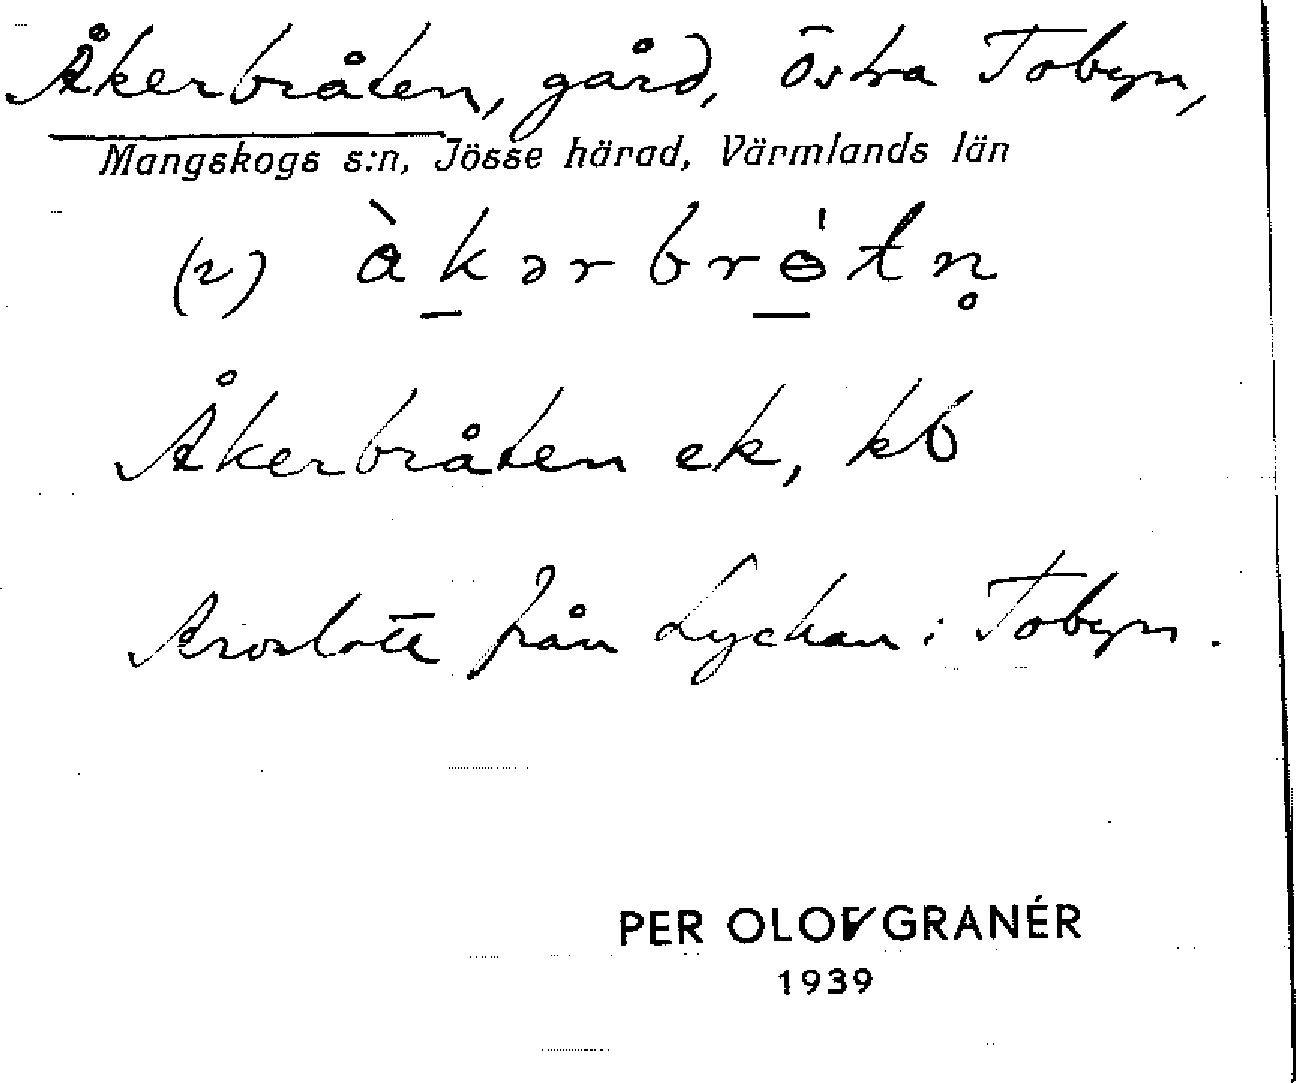 Åkerbråten, gård, Östra Tobyn,
Mangskogs s:n, Jösse härad, Värmlands län
(2) àkərbrɵ́tn̥
Åkerbråten ek, kb
Arvslott från Lyckan i Tobyn.
PER OLOV GRANÉR
1939